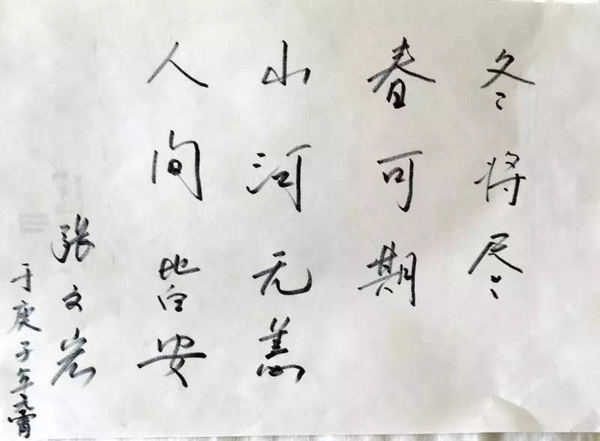 冬将尽
春可期
山河无恙
人间皆安
张文岩
于庚子年宵